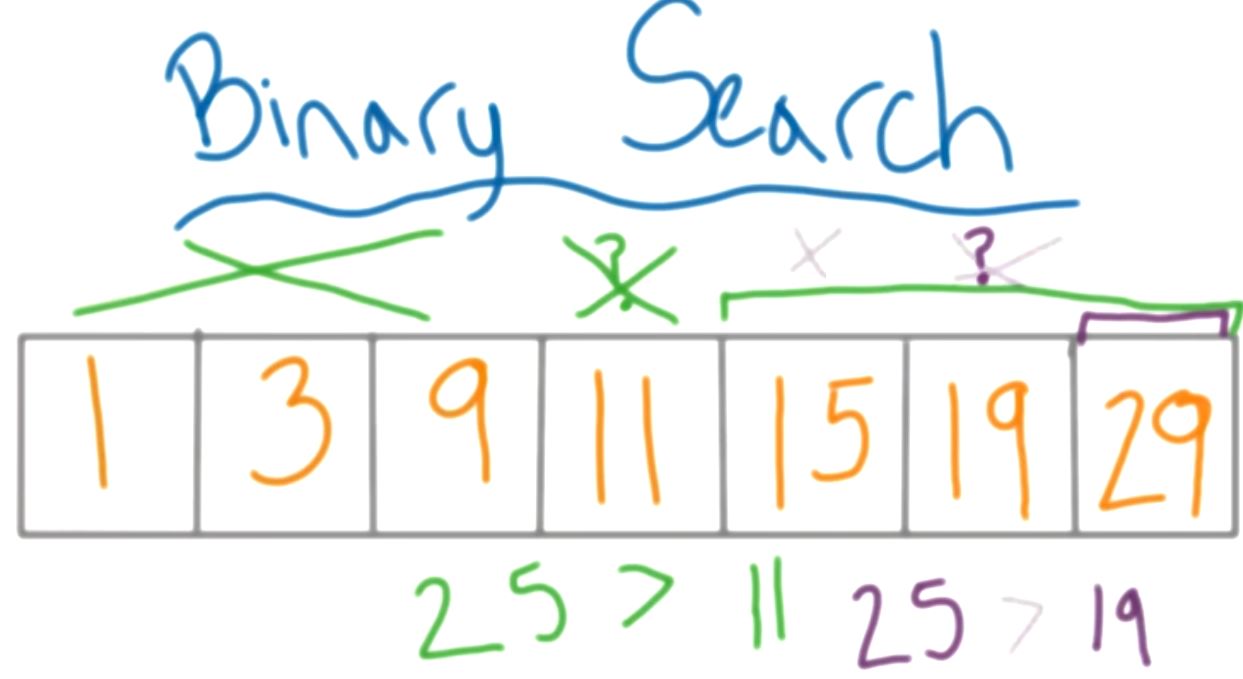 Binary Search
? ?
1 3 9 11 15 19 29
25 > 11 25 > 19